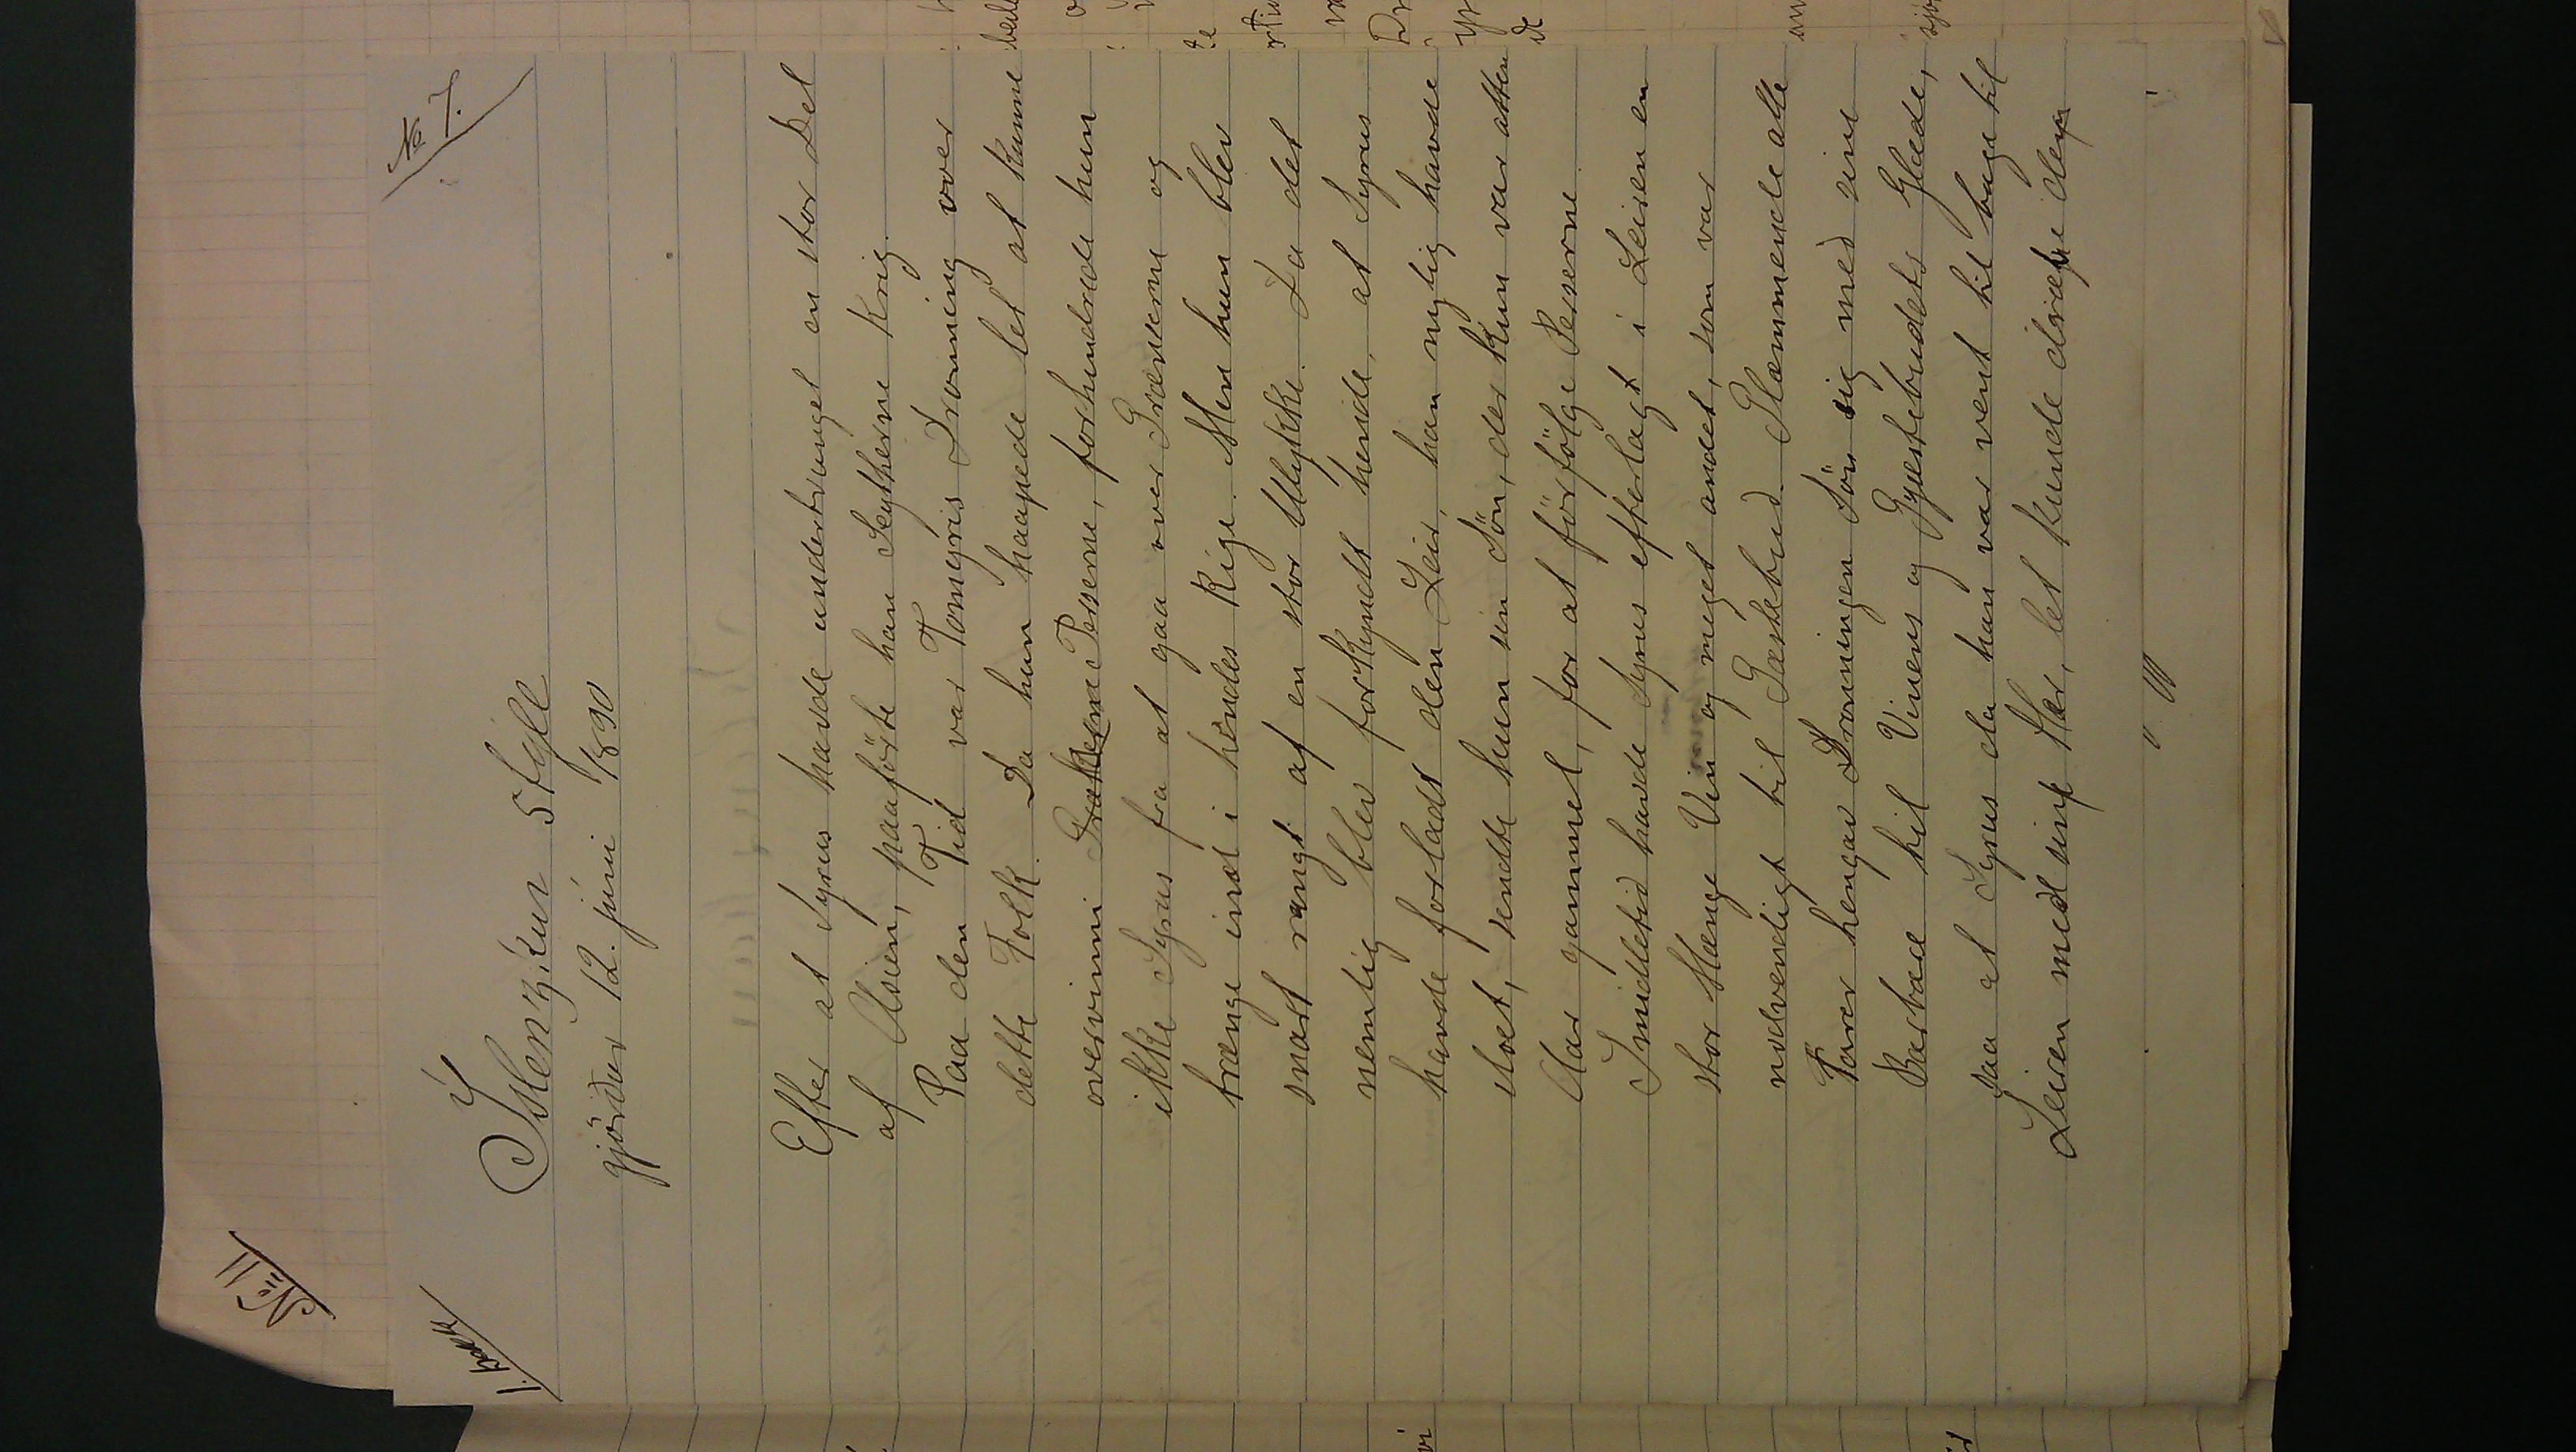 No II
1. bekk
No 7.
Íslenzkur Stýll
gjörður 12. júni 1890
Efter at Syrus havde undertvunget en stor Del
af Asien, paaförte han Scytherne Krig.
Paa den Tid var Tomyris Dronning over
dette Folk. Da hun haapede let at kunne
overvinni Grækerne Perserne, forhindrede hun
ikke Syrus fra at gaa over Grænserne og
trænge ind i hendes Rige. Men hun blev
snart rangt af en stor Ulykke. Da det
nemlig blev forkyndt hende, at Syrus
havde forladt den Leir, han nylig havde
slaet, sendte hun sin Sön, der kun var atten
Aar gammel, for at förfölge Perserne.
Imidlertid havde Syrus efterlagt i Leiren en
stor Mænge Vin og meget andet, som var
nødvendigt til Gæstebud. Flammende alle
Farer hengav Dronningen Sön sig med sine
Barbare til Vinens og Gjæstebudets Glæde,
saa at Syrus da han var vent til bage til
Leiren med sin Hær, let kunde dræbe dem